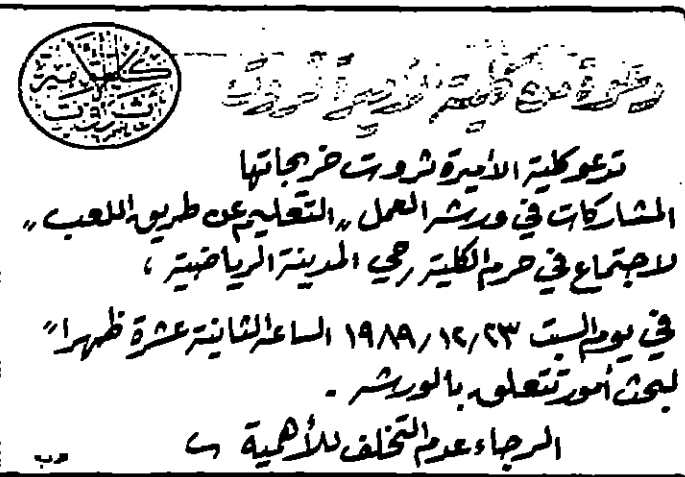 كلية الأميرة ثروت
دعوة من كلية الأميرة ثروت
تدعو كلية الأميرة ثروت خريجاتها
المشاركات في ورش العمل „التعليم عن طريق اللعب„
لاجتماع في حرم الكلية رحي المدينة الرياضية،
في يوم السبت ١٩٨٩/١٢/٢٣ الساعة الثانية عشرة ظهرا"
لبحث أمور تتعلق بالورش -
الرجاء عدم التخلف للأهمية